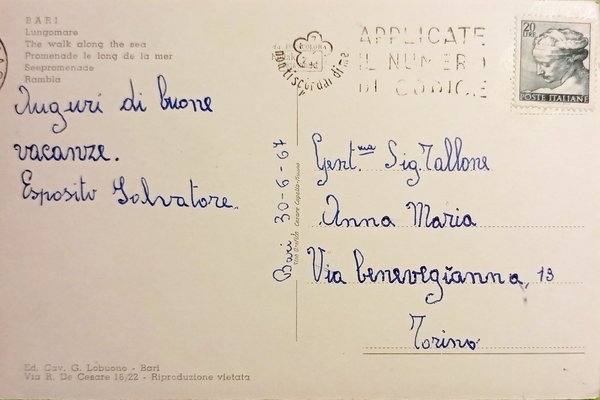 BARI
Lungomare
The walk along the sea
Promenade le long de la mer
Seepromenade
Rambla
Auguri di buone
vacanze.
Esposito Salvatore.
Ed. Cav. G. Lobuono - Bari
Via R. De Cesare 16/22 - Riproduzione vietata
Bari 30-6-67
nontiscordardime
APPLICATE
IL NUMERO
DI CODICE
20
LIRE
POSTE ITALIANE
Gent.ma Sig. Tallone
Anna Maria
Via benevegianna, 13
Torino